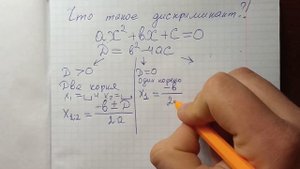 Что такое дискриминант?!
ax² + bx + c = 0
D = b² - 4ac
D > 0
Два корня
x₁ = ... и x₂ = ...
x₁,₂ = -b ± D / 2a
D = 0
Один корень
x₁ = -b / 2